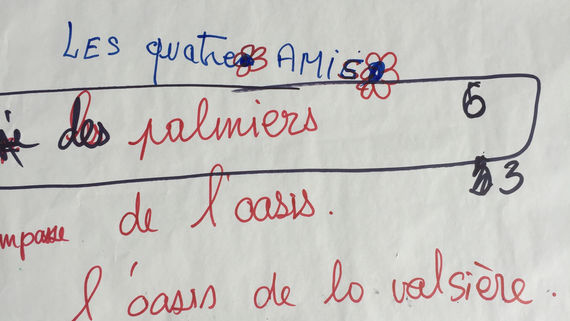 LES quatre AMIS
des palmiers 6
3
de l'oasis.
l'oasis de la valsière.